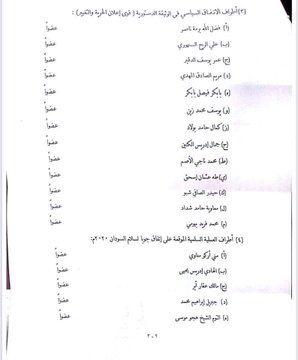 (٣) أطراف الاتفاق السياسي في الوثيقة الدستورية (قوى إعلان الحرية والتغيير) :
(أ) فضل الله برمة ناصر عضواً
(ب) علي الريح السنهوري عضواً
(ج) عمر يوسف الدقير عضواً
(د) مريم الصادق المهدي عضواً
(ه) بابكر فيصل بابكر عضواً
(و) يوسف محمد زين عضواً
(ز) كمال حامد بولاد عضواً
(ح) جمال إدريس الكنين عضواً
(ط) محمد ناجي الأصم عضواً
(ي) طه عثمان إسحق عضواً
(ك) حيدر الصافي شبو عضواً
(ل) معاوية حامد شداد عضواً
(م) محمد فريد بيومي عضواً
(٤) أطراف العملية السلمية الموقعة على إتفاق جوبا لسلام السودان ٢٠٢٠م:
(أ) مني أركو مناوي عضواً
(ب) الهادي إدريس يحيى عضواً
(ج) مالك عقار أير عضواً
(د) جبريل إبراهيم محمد عضواً
(ه) التوم الشيخ هجو موسى عضواً